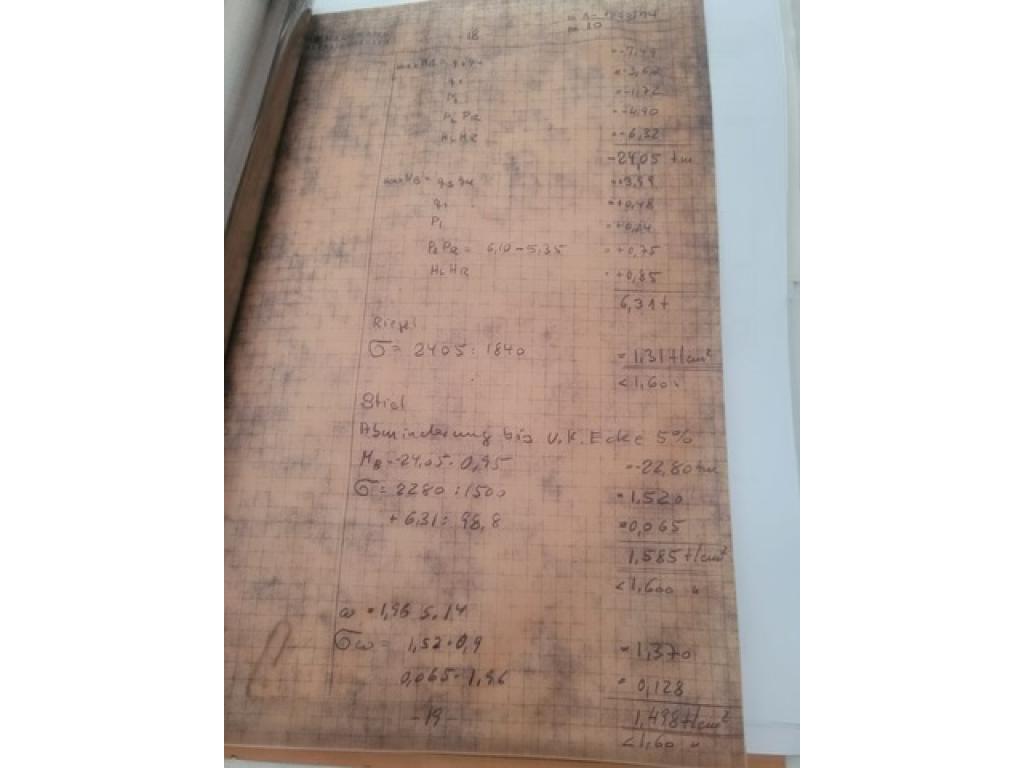 18
= -7,49
= -3,62
= -1,72
PL PR = -4,90
HL HR = -6,32
-24,05 tm
q3 q4 = +3,99
q1 = +0,48
P1 = +0,24
PL PR = 6,10 - 5,35 = +0,75
HL HR = +0,85
6,31 t
Riegel
σ = 2405 : 1840 = 1,31 t/cm²
< 1,60 "
Stiel
Abminderung bis U.K. Ecke 5%
MB = -24,05 · 0,95 = -22,80 tm
σ = 2280 : 1500 = 1,520
+ 6,31 : 98,8 = 0,065
1,585 t/cm²
< 1,600 "
ω = 1,96 S. 14
σω = 1,52 · 0,9 = 1,370
0,065 · 1,96 = 0,128
- 19 - 1,498 t/cm²
< 1,60 "